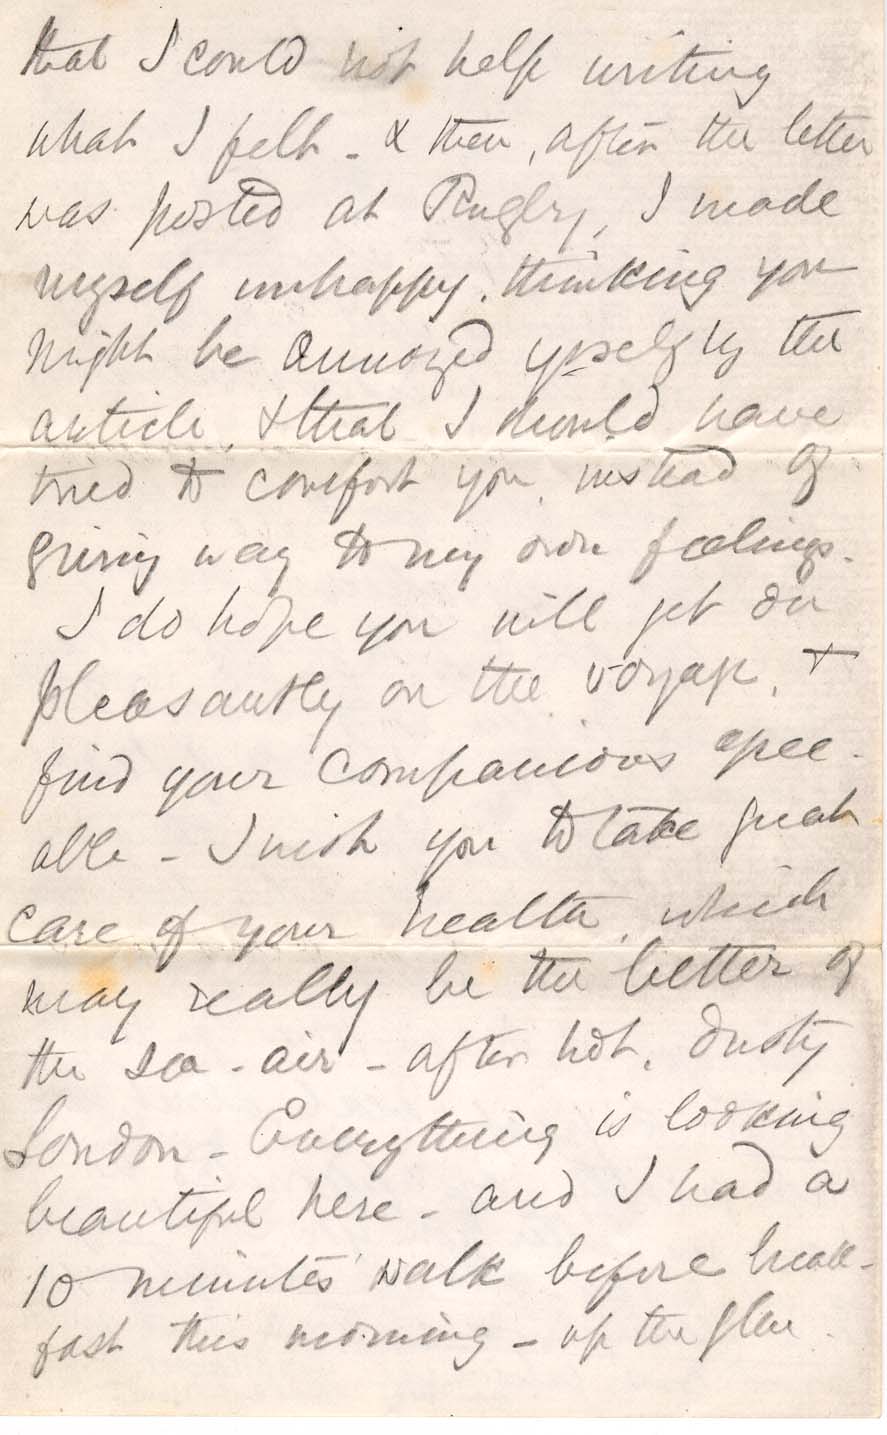 that I could not help writing
what I felt - & then, after the letter
was posted at Rugby, I made
myself unhappy, thinking you
might be annoyed yrself by the
article, & that I should have
tried to comfort you, instead of
giving way to my own feelings.
I do hope you will get on
pleasantly on the voyage, &
find your companions agree-
able - I wish you to take great
care of your health, which
may really be the better of
the sea-air - after hot, dusty
London - Everything is looking
beautiful here - and I had a
10 minutes' walk before break-
fast this morning - up the glen.